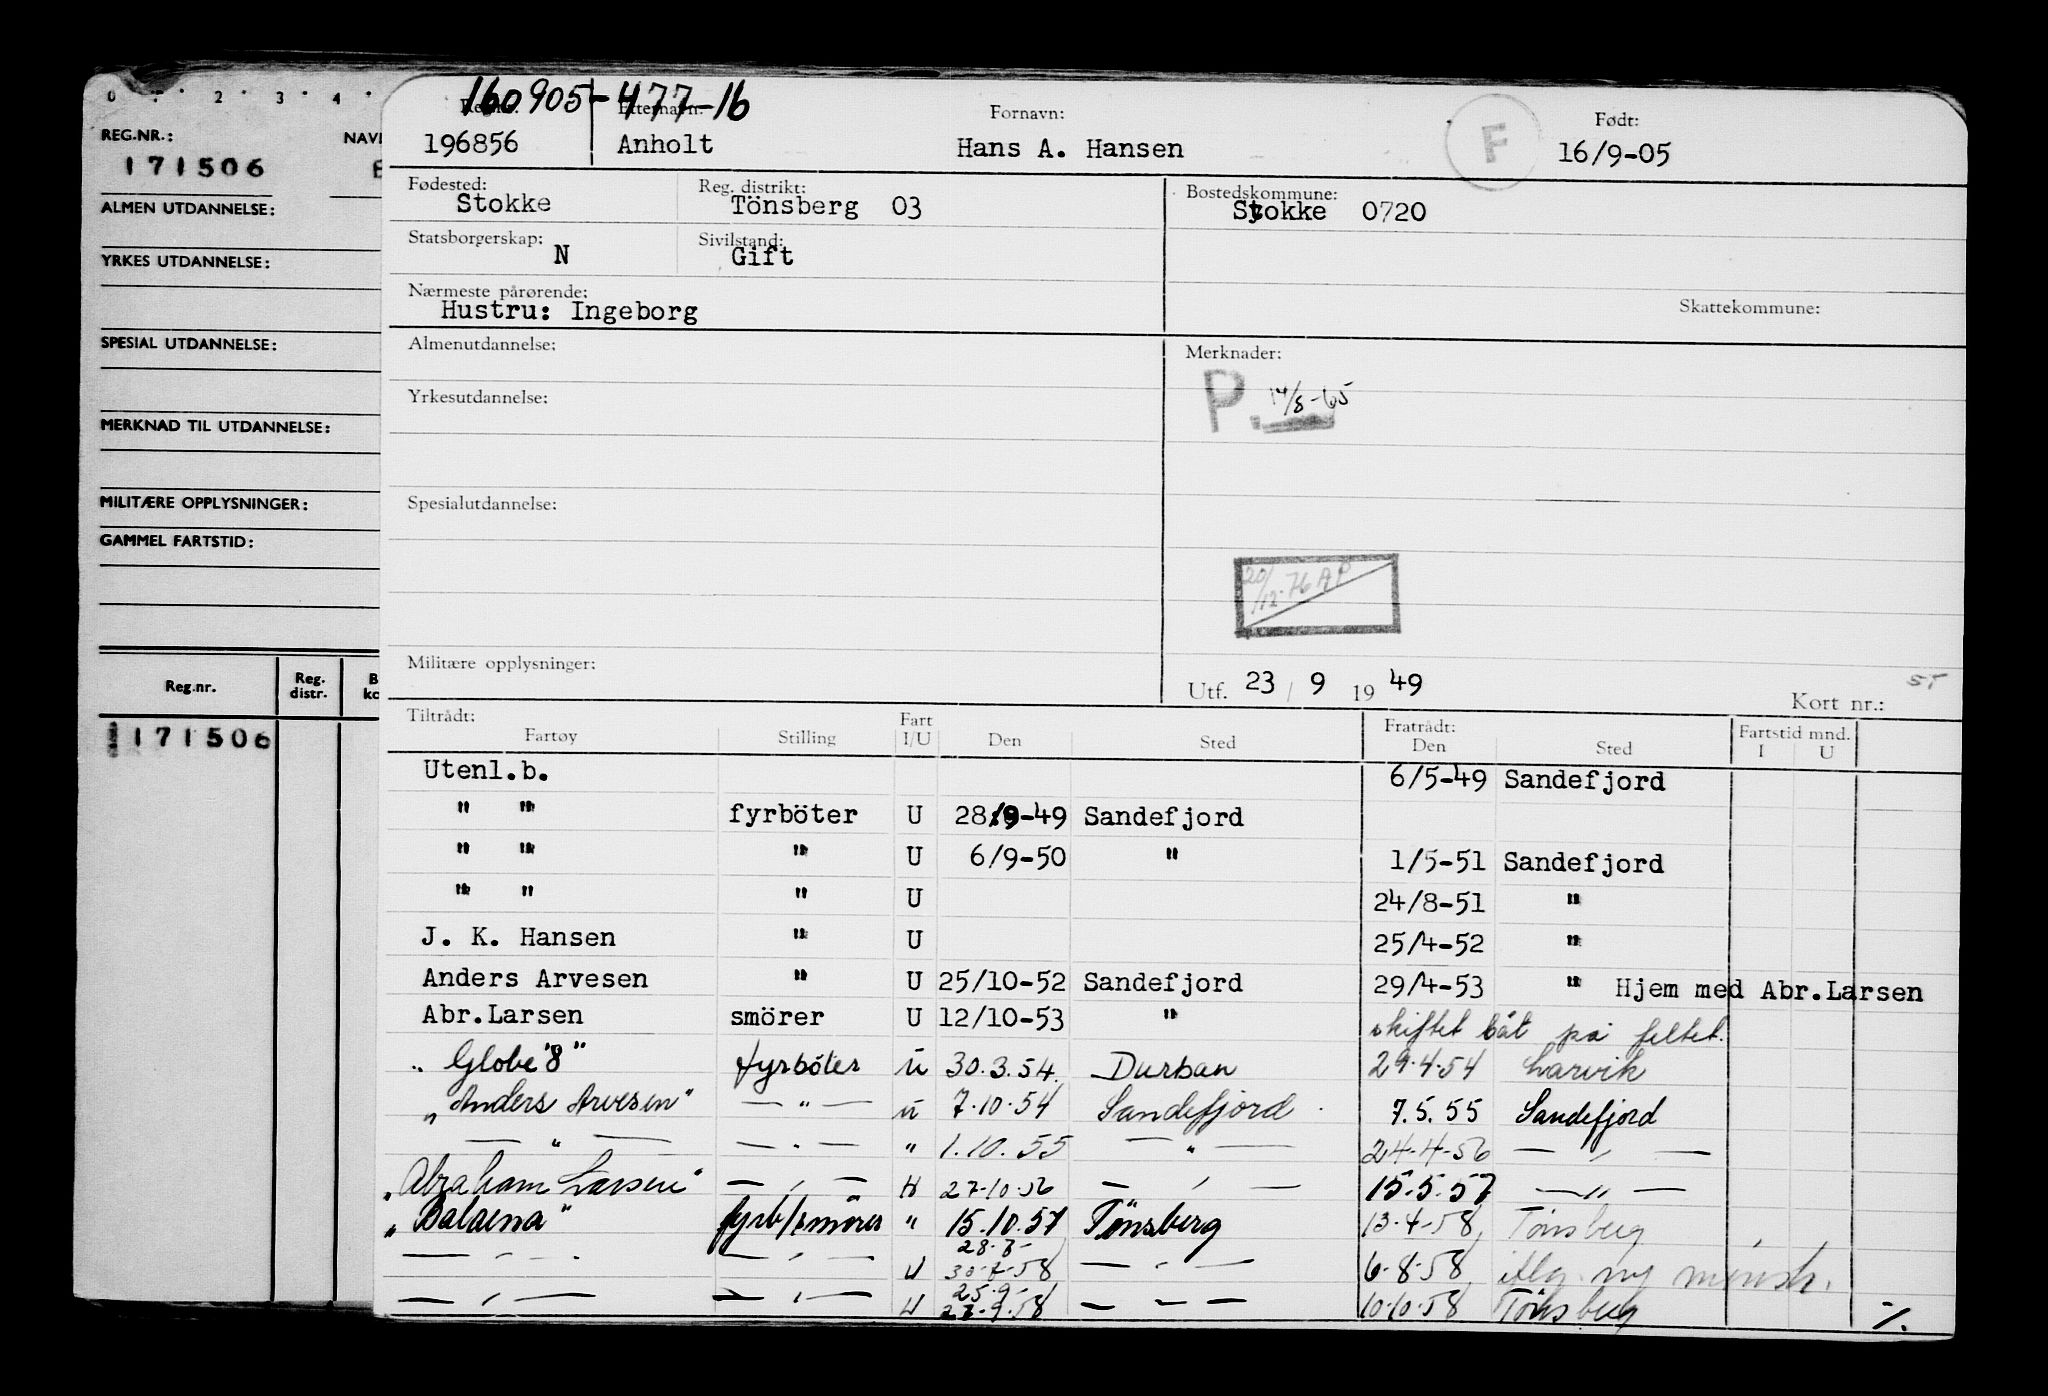 0 . . 2 . 3 . 4 .
REG.NR.: NAV
171506
ALMEN UTDANNELSE:
YRKES UTDANNELSE:
SPESIAL UTDANNELSE:
MERKNAD TIL UTDANNELSE:
MILITÆRE OPPLYSNINGER:
GAMMEL FARTSTID:
Reg.nr. Reg. distr. B ko
171506
160905-477-16
Etternavn: Fornavn: Født:
196856 Anholt Hans A. Hansen F 16/9-05
Fødested: Reg. distrikt: Bostedskommune:
Stokke Tönsberg 03 Stokke 0720
Statsborgerskap: Sivilstand:
N Gift
Nærmeste pårørende: Skattekommune:
Hustru: Ingeborg
Almenutdannelse: Merknader:
P. 14/8-65
Yrkesutdannelse:
Spesialutdannelse:
20/12-76 AP
Militære opplysninger: Utf. 23 / 9 19 49 Kort nr.: ST
Tiltrådt: Fart Fratrådt: Fartstid mnd.
Fartøy Stilling I/U Den Sted Den Sted I U
Utenl.b. 6/5-49 Sandefjord
" " fyrböter U 28/9-49 Sandefjord
" " " U 6/9-50 " 1/5-51 Sandefjord
" " " U 24/8-51 "
J. K. Hansen " U 25/4-52 "
Anders Arvesen " U 25/10-52 Sandefjord 29/4-53 " Hjem med Abr.Larsen
Abr.Larsen smörer U 12/10-53 " skiftet båt på feltet.
"Globe 8" fyrböter U 30.3.54. Durban 29.4.54 Larvik
"Anders Arvesen" — " — U 7.10.54 Sandefjord 7.5.55 Sandefjord
— " — — " — " 1.10.55 — " — 24-4-56 — " —
"Abraham Larsen" — " — U 27-10-56 — " — 15.5.57 — " —
"Balaena" fyrb/smörer " 15.10.57 Tönsberg 13-4-58 Tönsberg
28.7-
— " — — " — U 30-7-58 — " — 6-8-58 iflg. ny mönstr.
25.9-
— " — — " — U 27-9-58 — " — 10-10-58 Tönsberg %.